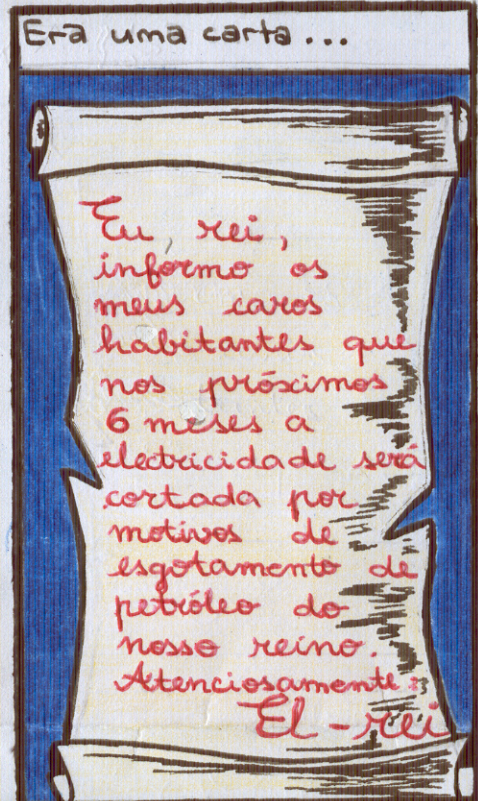 Era uma carta...
Eu rei,
informo os
meus caros
habitantes que
nos próximos
6 meses a
electricidade será
cortada por
motivos de
esgotamento de
petróleo do
nosso reino.
Atenciosamente:
El-rei